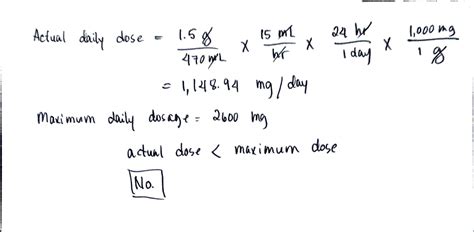 Actual daily dose = 1.5 g / 470 mL × 15 mL / hr × 24 hr / 1 day × 1,000 mg / 1 g
= 1,148.94 mg / day
Maximum daily dosage = 2600 mg
actual dose < maximum dose
No.